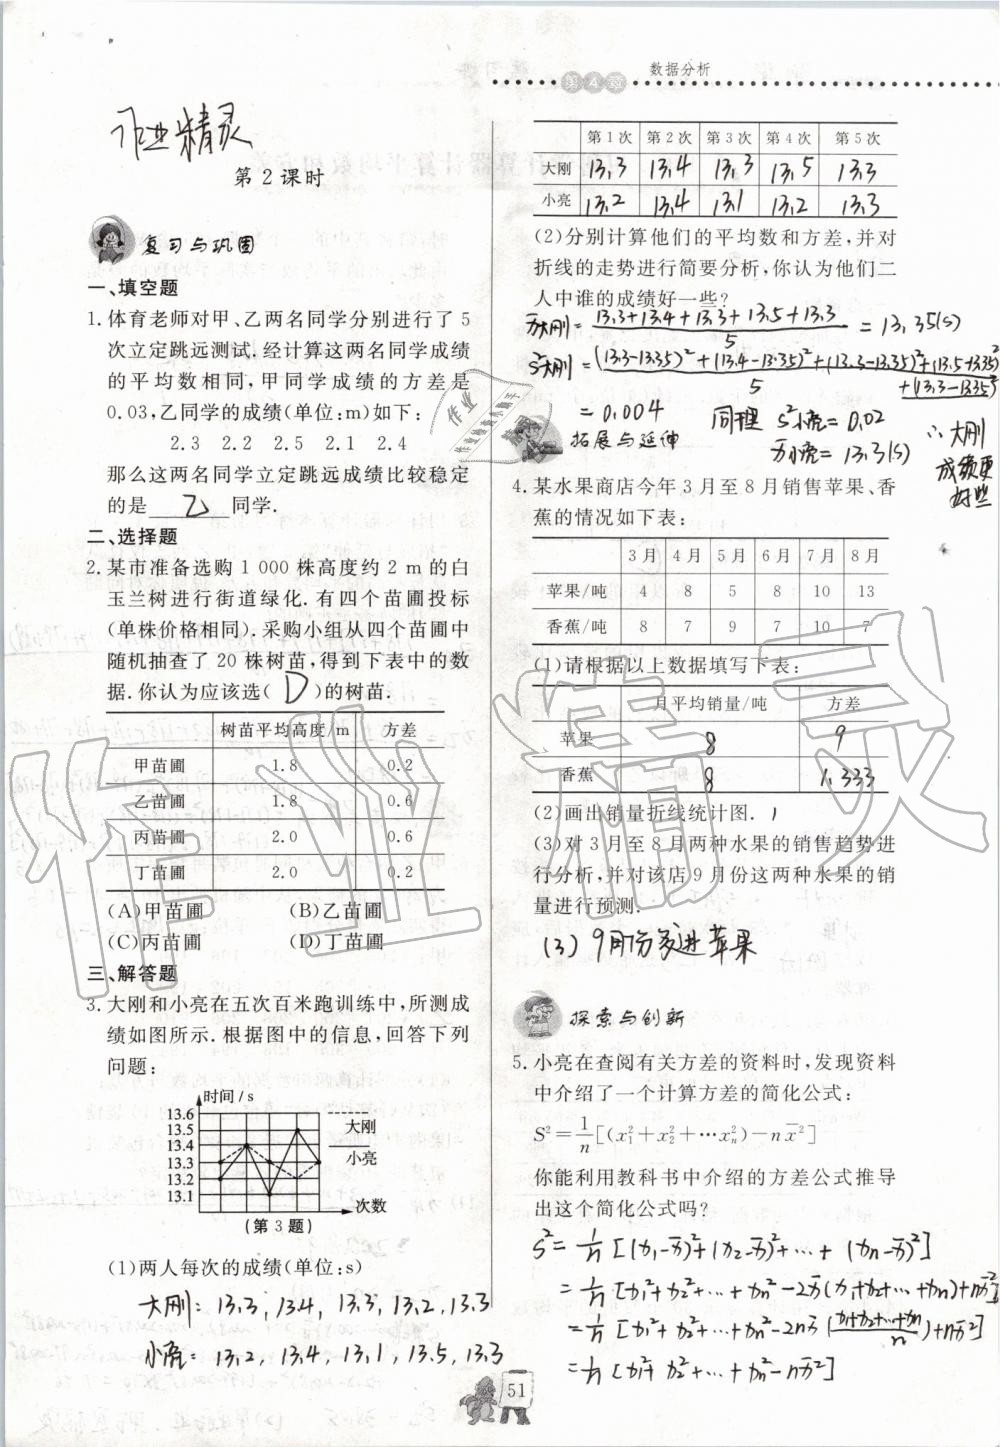 数据分析
第4章
作业精灵
第2课时
复习与巩固
一、填空题
1. 体育老师对甲、乙两名同学分别进行了5
次立定跳远测试.经计算这两名同学成绩
的平均数相同,甲同学成绩的方差是
0.03,乙同学的成绩(单位:m)如下:
2.3 2.2 2.5 2.1 2.4
那么这两名同学立定跳远成绩比较稳定
的是 乙 同学.
二、选择题
2. 某市准备选购1 000株高度约2 m的白
玉兰树进行街道绿化.有四个苗圃投标
(单株价格相同).采购小组从四个苗圃中
随机抽查了20株树苗,得到下表中的数
据.你认为应该选( D )的树苗.
树苗平均高度/m 方差
甲苗圃 1.8 0.2
乙苗圃 1.8 0.6
丙苗圃 2.0 0.6
丁苗圃 2.0 0.2
(A)甲苗圃 (B)乙苗圃
(C)丙苗圃 (D)丁苗圃
三、解答题
3. 大刚和小亮在五次百米跑训练中,所测成
绩如图所示.根据图中的信息,回答下列
问题:
时间/s
13.6
13.5
13.4
13.3
13.2
13.1
大刚
小亮
次数
(第3题)
(1)两人每次的成绩(单位:s)
大刚:13.3,13.4,13.3,13.2,13.3
小亮:13.2,13.4,13.1,13.5,13.3
第1次 第2次 第3次 第4次 第5次
大刚 13.3 13.4 13.3 13.5 13.3
小亮 13.2 13.4 13.1 13.2 13.3
(2)分别计算他们的平均数和方差,并对
折线的走势进行简要分析,你认为他们二
人中谁的成绩好一些?
x̄大刚=(13.3+13.4+13.3+13.5+13.3)/5=13.35(s)
S²大刚=((13.3-13.35)²+(13.4-13.35)²+(13.3-13.35)²+(13.5-13.35)²+(13.3-13.35)²)/5
=0.004 同理 S²小亮=0.02
x̄小亮=13.3(s)
∴大刚
成绩更
好些
拓展与延伸
4. 某水果商店今年3月至8月销售苹果、香
蕉的情况如下表:
3月 4月 5月 6月 7月 8月
苹果/吨 4 8 5 8 10 13
香蕉/吨 8 7 9 7 10 7
(1)请根据以上数据填写下表:
月平均销量/吨 方差
苹果 8 9
香蕉 8 1.333
(2)画出销量折线统计图.
(3)对3月至8月两种水果的销售趋势进
行分析,并对该店9月份这两种水果的销
量进行预测.
(3) 9月份多进苹果
探索与创新
5. 小亮在查阅有关方差的资料时,发现资料
中介绍了一个计算方差的简化公式:
S²=1/n[(x₁²+x₂²+…xₙ²)-nx̄²]
你能利用教科书中介绍的方差公式推导
出这个简化公式吗?
S²=1/n[(x₁-x̄)²+(x₂-x̄)²+…+(xₙ-x̄)²]
=1/n[x₁²+x₂²+…+xₙ²-2x̄(x₁+x₂+…+xₙ)+nx̄²]
=1/n[x₁²+x₂²+…+xₙ²-2nx̄((x₁+x₂+…+xₙ)/n)+nx̄²]
=1/n[x₁²+x₂²+…+xₙ²-nx̄²]
51
作业精灵